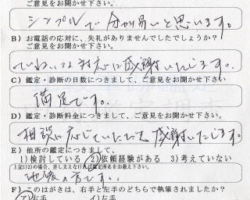 ご意見をお聞かせ下さい。
シンプルで分かり易いと思います。
B）お電話の応対に、失礼がありませんでしたでしょうか？
ご意見をお聞かせ下さい。
ていねいな対応に感謝いたします。
C）鑑定・診断の日数につきまして、
ご意見をお聞かせ下さい。
満足です。
D）鑑定・診断料金につきまして、
ご意見をお聞かせ下さい。
相談に応じていただき感謝いたします。
E）他所の鑑定につきまして、
1）検討している 2）依頼経験がある 3）考えていない
ご意見をお聞かせ下さい。
F）このはがきは、右手と左手のどちらで執筆されましたか？
ア）右手 イ）左手